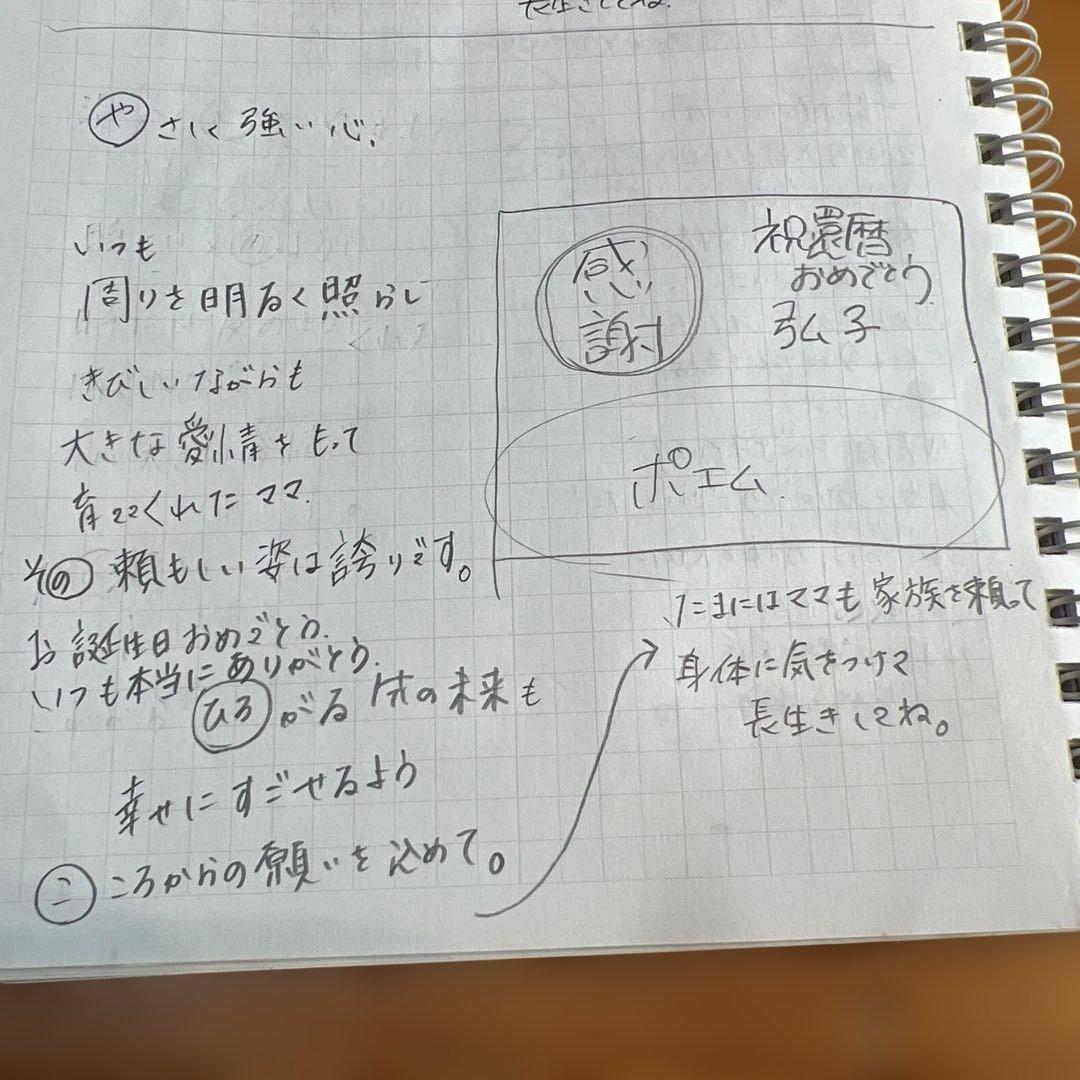 長生きしてね。
やさしく強い心、
いつも
周りを明るく照らし
きびしいながらも
大きな愛情をもって
育ててくれたママ.
その頼もしい姿は誇りです。
お誕生日おめでとう.
いつも本当にありがとう.
ひろがる の未来も
幸せにすごせるよう
こころからの願いを込めて。
感謝
祝還暦
おめでとう
弘子
ポエム
たまにはママも家族を頼って
身体に気をつけて
長生きしてね。